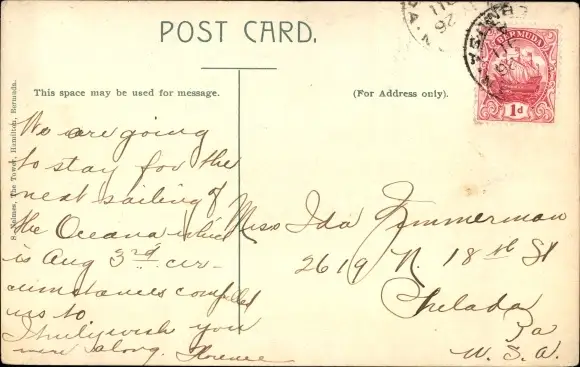 POST CARD.
This space may be used for message.
(For Address only).
S. Nelmes, The Tower, Hamilton, Bermuda.
BERMUDA
1d
We are going
to stay for the
next sailing of
the Oceana which
is Aug 3rd. cir-
cumstances compelled
us to.
I truly wish you
were along. Florence
Miss Ida Zimmerman
2619 N. 18th St
Philada
Pa
U. S. A.